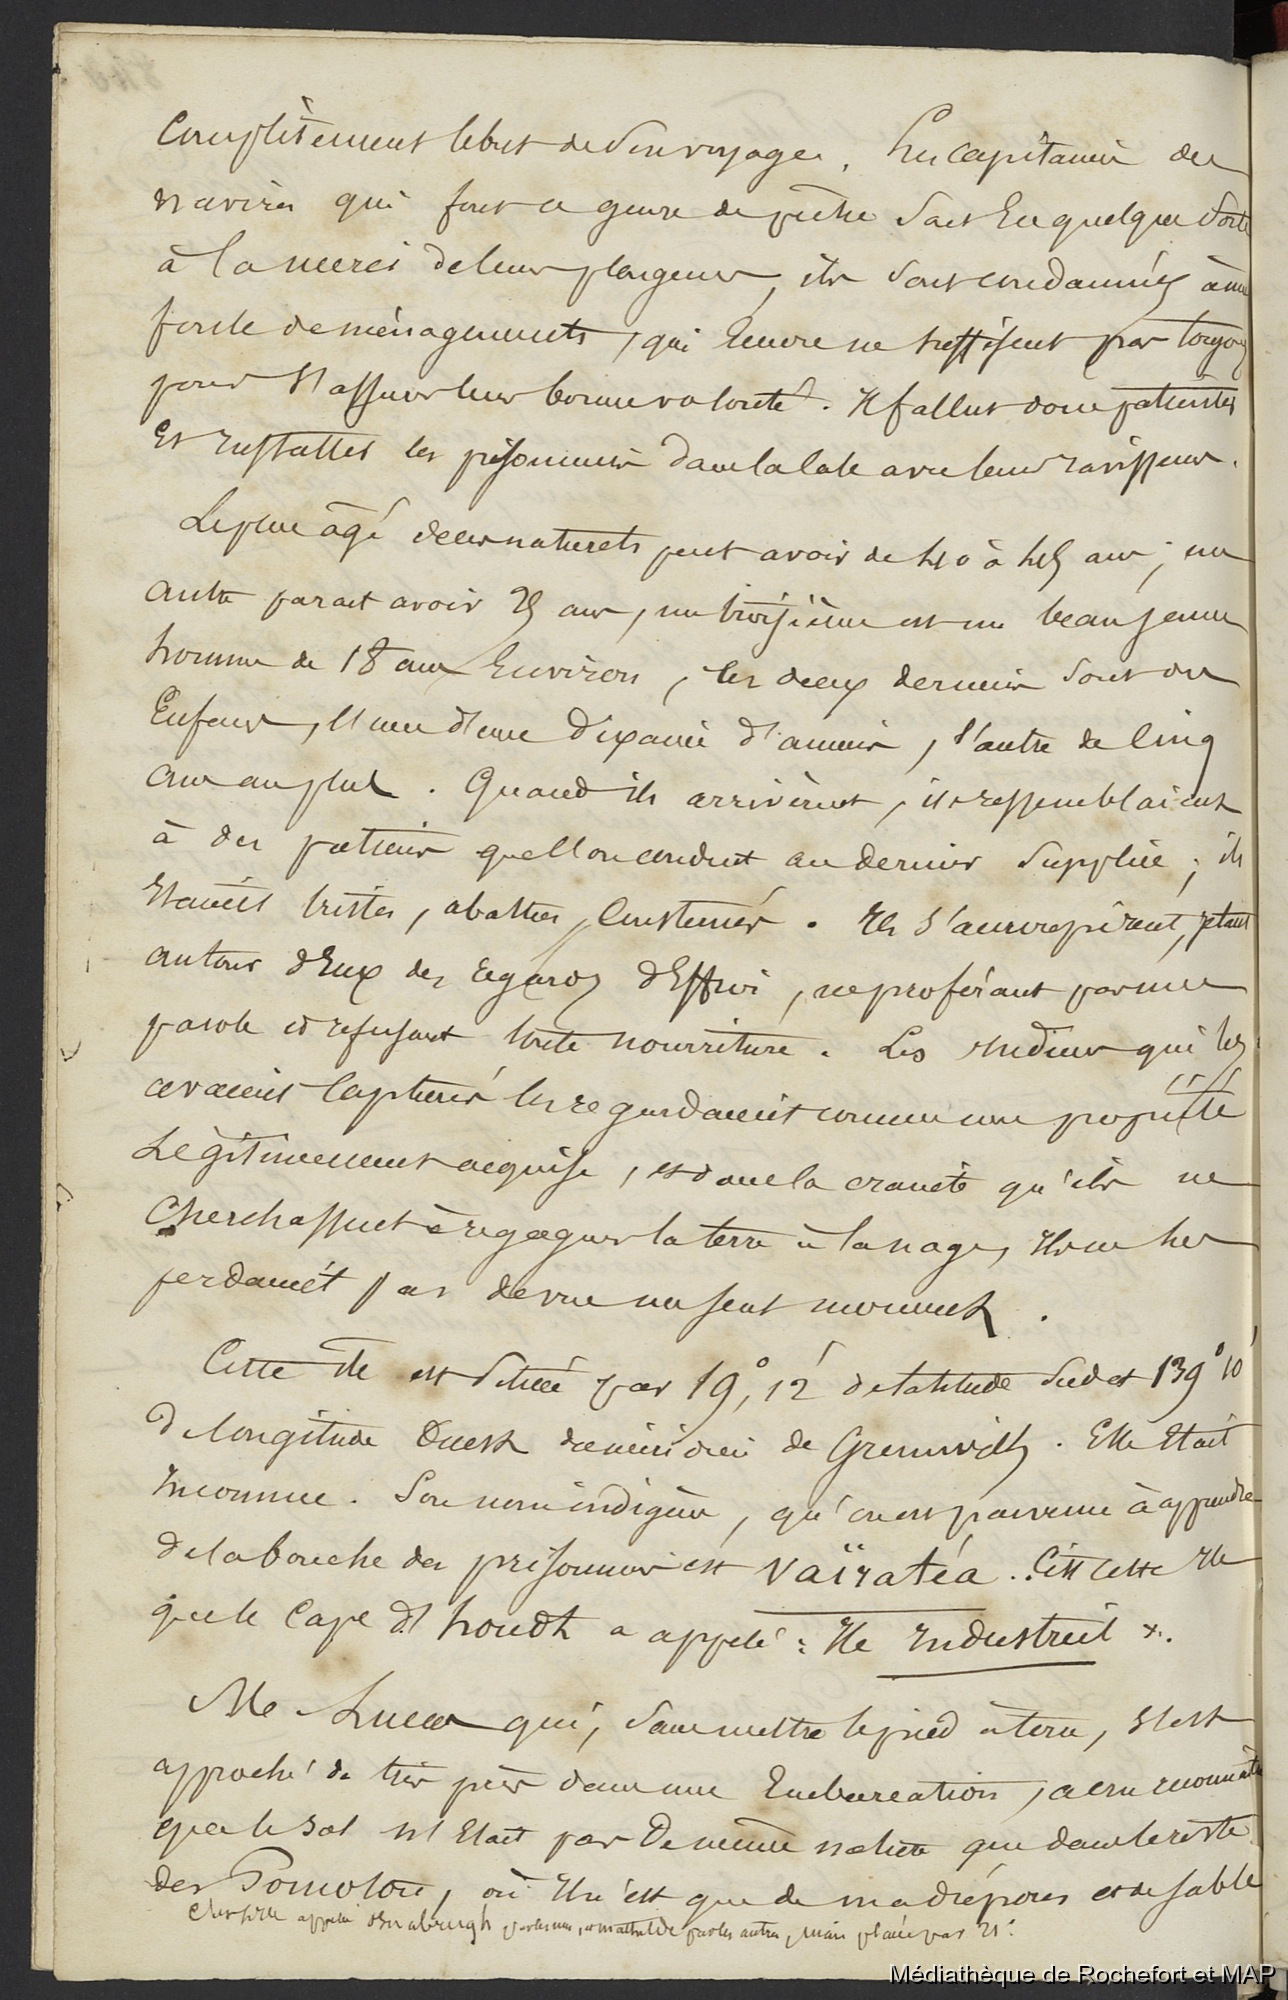 Complètement le but de son voyage. Les capitaines des
navires qui font ce genre de pêche sont en quelque sorte
à la merci de leurs plongeurs, ils sont condamnés à une
foule de ménagements, qui encore ne suffisent pas toujours
pour s'assurer leur bonne volonté. Il fallut donc patienter
et installer les prisonniers dans la cale avec leurs ravisseurs.
Le plus âgé de ces naturels peut avoir de 40 à 45 ans ; un
autre parait avoir 25 ans, un troisième est un beau jeune
homme de 18 ans environ, les deux derniers sont des
Enfans, l'un d'une dixaine d'années, l'autre de cinq
ans au plus. Quand ils arrivèrent, ils ressemblaient
à des patiens que l'on conduit au dernier supplice ; ils
étaient tristes, abattus, consternés. Ils s'accroupirent, jetant
autour d'eux des regards d'effroi, ne proférant pas une
parole et refusant toute nourriture. Les Indiens qui les
avaient capturés les regardaient comme une propriété
Légitimement acquise, et dans la crainte qu'ils ne
cherchassent à regagner la terre à la nage, ils ne les
perdaient pas de vue un seul moment.
Cette île est située par 19°, 12' de latitude Sud et 139° 10'
de longitude Ouest du méridien de Greenwich. Elle était
inconnue. Son nom indigène, qu'on est parvenu à apprendre
de la bouche des prisonniers est Vaïratéa. C'est cette île
que le Cape d'houdt a appelé : Ile Industriel x.
Mr Lucas qui, sans mettre le pied à terre, s'est
approché de très près dans une Embarcation, a cru reconnaître
que le sol n'était pas de même nature que dans le reste
des Pomotou, où il n'est que de madrépores et de sable
appelée Osnabrugh par les uns, et Mathilde par les autres, mais placée par 21°.
Médiathèque de Rochefort et MAP